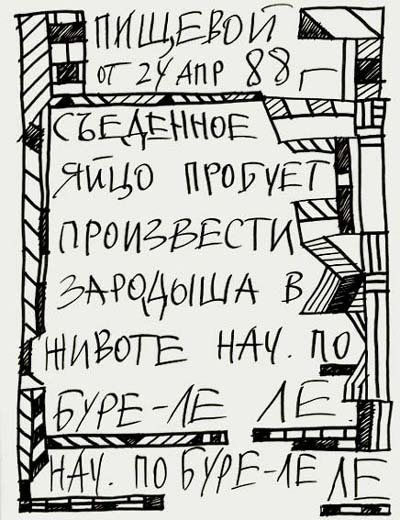 ПИЩЕВОЙ
ОТ 24 АПР 88 Г
СЪЕДЕННОЕ
ЯЙЦО ПРОБУЕТ
ПРОИЗВЕСТИ
ЗАРОДЫША В
ЖИВОТЕ НАЧ. ПО
БУРЕ-ЛЕ ЛЕ.
НАЧ. ПО БУРЕ-ЛЕ ЛЕ